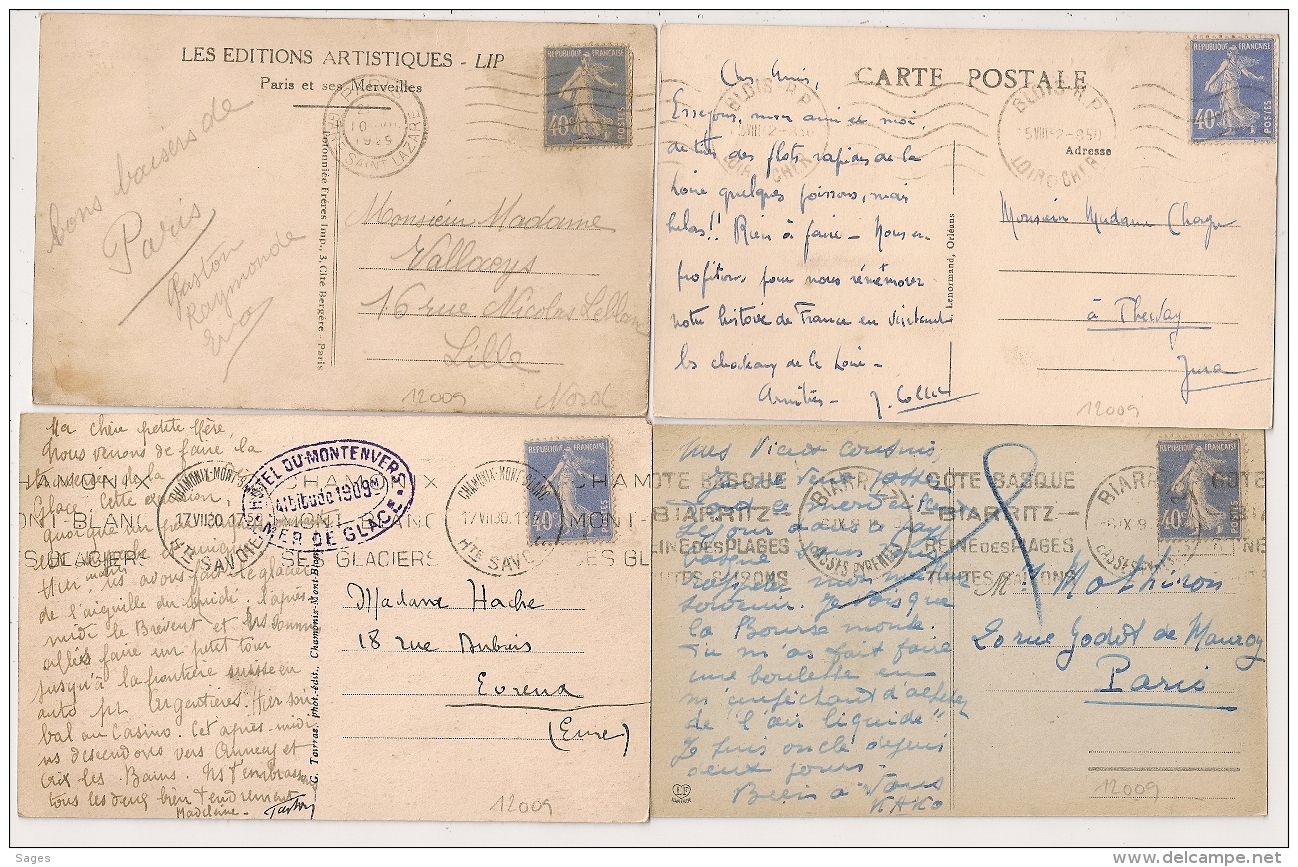 LES EDITIONS ARTISTIQUES - LIP
Paris et ses Merveilles
REPUBLIQUE FRANÇAISE
40c
POSTES
PARIS
1929
SAINT LAZARE
bons baisers de
Paris
Gaston
Raymonde
Monsieur Madame
Vallaeys
16 rue Nicolas Leblanc
Lille
Nord
12009
Catonnière Frères Imp. 3, Cité Bergère - Paris
CARTE POSTALE
REPUBLIQUE FRANÇAISE
40c
POSTES
BLOIS R.P.
LOIR & CHER
BLOIS R.P.
LOIR & CHER
Adresse
Chers Amis,
Essayons, mon ami et moi,
des flots rapides de la
Loire quelques poissons, mais
helas!! Rien à faire - Nous en
profitons pour nous remémorer
notre histoire de France en visitant
les chateaux de la Loire -
Amitiés - J.
Lenormand, Orléans
Monsieur Madame
à
Jura
12009
Ma chère petite Mère,
Nous venons de faire la
traversée de la
Glace. Cette
quoique un peu
Hier matin ns avons fait le glacier
de l'aiguille du midi. l'après
midi le Brévent et ns sommes
allés faire un petit tour
jusqu'à la frontière suisse en
auto par Argentières. Hier soir
bal au Casino. Cet après-midi
ns descendons vers Annecy et
Aix les Bains. Ns t'embrassons
tous les deux bien tendrement
Madeleine - Gaston
HOTEL DU MONTENVERS
Altitude 1909m
MER DE GLACE
CHAMONIX-MONT-BLANC
17 VII 30
HTE SAVOIE
CHAMONIX
MONT-BLANC
SES GLACIERS
CHAMONIX-MONT-BLANC
17 VII 30
HTE SAVOIE
REPUBLIQUE FRANÇAISE
40c
G. Tairraz, phot.-édit., Chamonix-Mont-Blanc
Madame Hache
18 rue Dubais
Evreux
(Eure)
12009
Mes Vieux cousins,
Je veux
séjour
basque sans
mon meilleur
souvenir. Je vois que
la Bourse monte.
Tu m'as fait faire
une boulette en
m'empêchant d'acheter
de "l'air liquide"
Je suis oncle depuis
deux jours.
Bien à Vous
KAKO
COTE BASQUE
BIARRITZ -
REINE DES PLAGES
TOUTES SAISONS
BIARRITZ
BASSES PYRENEES
BIARRITZ
BASSES PYRENEES
REPUBLIQUE FRANÇAISE
40c
POSTES
M
20 rue Godot de Mauroy
Paris
12009
Sages
delcampe.net